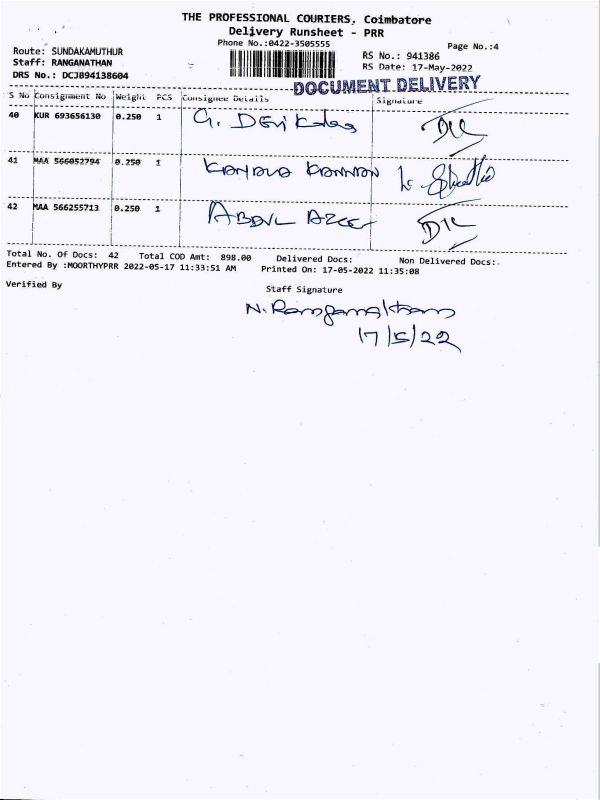 THE PROFESSIONAL COURIERS, Coimbatore
Delivery Runsheet - PRR
Phone No.:0422-3505555
Page No.:4
Route: SUNDAKAMUTHUR
RS No.: 941386
Staff: RANGANATHAN
RS Date: 17-May-2022
DRS No.: DCJB94138604
DOCUMENT DELIVERY
S No Consignment No Weight PCS Consignee Details Signature
40 KUR 693656130 0.250 1 G. DEVI
41 MAA 566052794 0.250 1 KANNAN
42 MAA 566255713 0.250 1 ABDUL AZEE
Total No. Of Docs: 42 Total COD Amt: 898.00 Delivered Docs: Non Delivered Docs:
Entered By :MOORTHYPRR 2022-05-17 11:33:51 AM Printed On: 17-05-2022 11:35:08
Verified By Staff Signature
N. Ranganathan
17/5/22